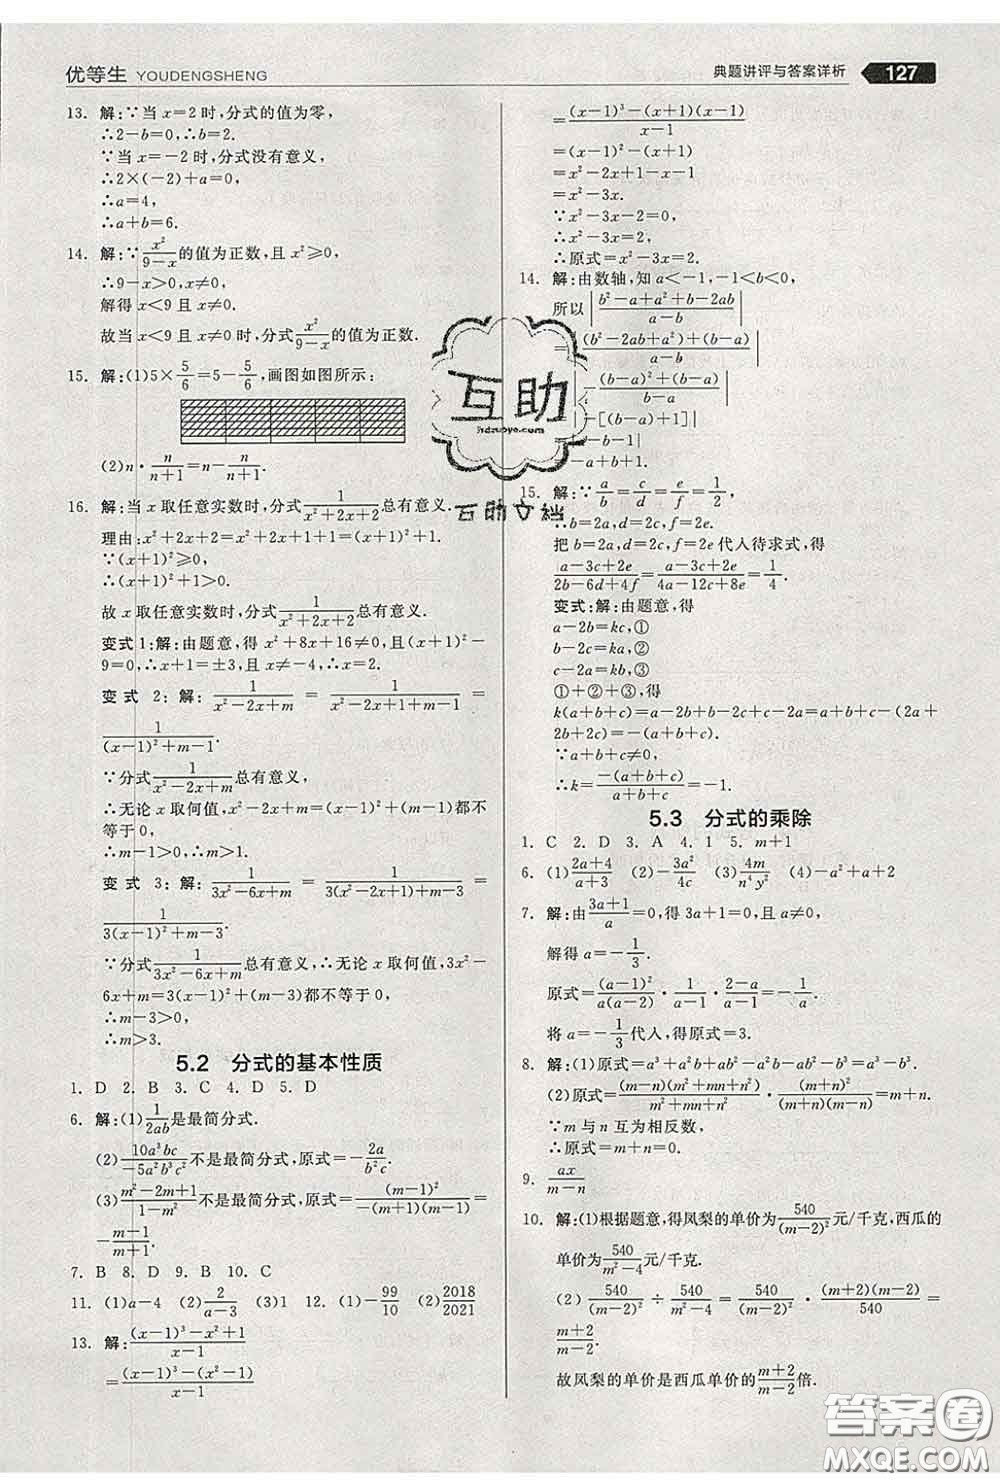 优等生 YOUDENGSHENG
典题讲评与答案详析 127
13. 解:∵当 x=2 时,分式的值为零,
∴2-b=0,∴b=2.
∵当 x=-2 时,分式没有意义,
∴2×(-2)+a=0,
∴a=4,
∴a+b=6.
14. 解:∵x²/(9-x)的值为正数,且 x²≥0,
∴9-x>0,x≠0,
解得 x<9 且 x≠0,
故当 x<9 且 x≠0 时,分式x²/(9-x)的值为正数.
15. 解:(1)5×5/6=5-5/6,画图如图所示:
(2)n·n/(n+1)=n-n/(n+1).
16. 解:当 x 取任意实数时,分式1/(x²+2x+2)总有意义.
理由:x²+2x+2=(x+1)²+1,
∵(x+1)²≥0,
∴(x+1)²+1>0.
故 x 取任意实数时,分式1/(x²+2x+2)总有意义.
变式 1:解:由题意,得 x²+8x+16≠0,且(x+1)²-
9=0,∴x+1=±3,且 x≠-4,∴x=2.
变式 2:解:1/(x²-2x+m) = 1/(x²-2x+1+m-1) =
1/((x-1)²+m-1).
∵分式1/(x²-2x+m)总有意义,
∴无论 x 取何值,x²-2x+m=(x-1)²+m-1 都不
等于 0,
∴m-1>0,∴m>1.
变式 3:解:1/(3x²-6x+m) = 1/(3(x²-2x+1)+m-3) =
1/(3(x-1)²+m-3).
∵分式1/(3x²-6x+m)总有意义,∴无论 x 取何值,3x²-
6x+m=3(x-1)²+m-3都不等于 0,
∴m-3>0,
∴m>3.
5.2 分式的基本性质
1. D 2. B 3. C 4. D 5. D
6. 解:(1)1/(2ab)是最简分式.
(2)10a³bc/(-5a²b³c²)不是最简分式,原式=-2a/(b²c).
(3)(m²-2m+1)/(1-m²)不是最简分式,原式=(m-1)²/(-(m+1)(m-1))=
-(m-1)/(m+1).
7. B 8. D 9. B 10. C
11. (1)a-4 (2)2/(a-3) (3)1 12. (1)-99/10 (2)2018/2021
13. 解:((x-1)³-x²+1)/(x-1)
=((x-1)³-(x²-1))/(x-1)
=((x-1)³-(x+1)(x-1))/(x-1)
=(x-1)²-(x+1)
=x²-2x+1-x-1
=x²-3x.
∵x²-3x-2=0,
∴x²-3x=2,
∴原式=x²-3x=2.
14. 解:由数轴,知 a<-1,-1<b<0,
所以|(b²-a+a²+b-2ab)/(a-b)|
=|((b²-2ab+a²)+(b-a))/(a-b)|
=|((b-a)²+(b-a))/(a-b)|
=|-[(b-a)+1]|
=|a-b-1|
=-a+b+1.
15. 解:∵a/b=c/d=e/f=1/2,
∴b=2a,d=2c,f=2e.
把 b=2a,d=2c,f=2e 代入待求式,得
(a-3c+2e)/(2b-6d+4f)=(a-3c+2e)/(4a-12c+8e)=1/4.
变式:解:由题意,得
a-2b=kc,①
b-2c=ka,②
c-2a=kb,③
①+②+③,得
k(a+b+c)=a-2b+b-2c+c-2a=a+b+c-(2a+
2b+2c)=-(a+b+c).
∵a+b+c≠0,
∴k=-(a+b+c)/(a+b+c)=-1.
5.3 分式的乘除
1. C 2. D 3. A 4. 1 5. m+1
6. (1)(2a+4)/(a+3) (2)-3a²/(4c) (3)4m/(n⁴y²) (4)-a²+a+2
7. 解:由(3a+1)/a=0,得 3a+1=0,且 a≠0,
解得 a=-1/3.
原式=(a-1)²/(a(a-2))·(a-2)/(a-1)·1/(a-1)=1/a.
将 a=-1/3代入,得原式=3.
8. 解:(1)原式=a³+a²b+ab²-a²b-ab²-b³=a³-b³.
(2)原式=(m-n)(m²+mn+n²)/(m²+mn+n²)·(m+n)(m+n)/((m+n)(m-n))=m+n.
∵m 与 n 互为相反数,
∴原式=m+n=0.
9. ax/(m-n)
10. 解:(1)根据题意,得凤梨的单价为540/(m-2)²元/千克,西瓜的
单价为540/(m²-4)元/千克.
(2)540/(m-2)² ÷ 540/(m²-4) = 540/(m-2)² · (m+2)(m-2)/540 =
(m+2)/(m-2).
故凤梨的单价是西瓜单价的(m+2)/(m-2)倍.
互助
hdzuoye.com
互助文档
答案圈
MXQE.COM